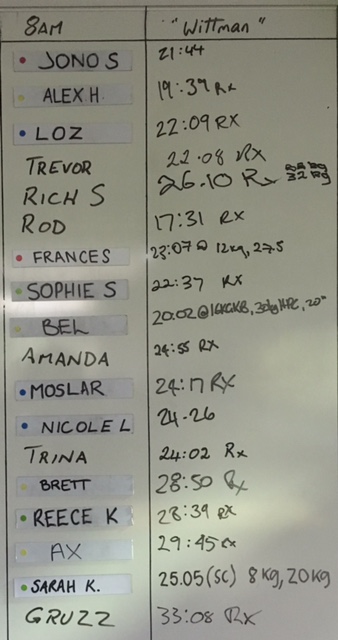 8AM "Wittman"
JONO S 21:44
ALEX H 19:39 Rx
LOZ 22:09 RX
TREVOR 22.08 RX
RICH S 26.10 Rx 32 kg
ROD 17:31 RX
FRANCES 23:07 @ 12kg, 27.5
SOPHIE S 22:37 RX
BEL 20:02 @ 16KGKB, 30kg HPC, 20"
AMANDA 24:55 RX
MOSLAR 24:17 RX
NICOLE L 24-26
TRINA 24:02 Rx
BRETT 28:50 Rx
REECE K 28:39 RX
AX 29:45 Rx
SARAH K. 25.05 (SC) 8 kg, 20 kg
GRUZZ 33:08 RX